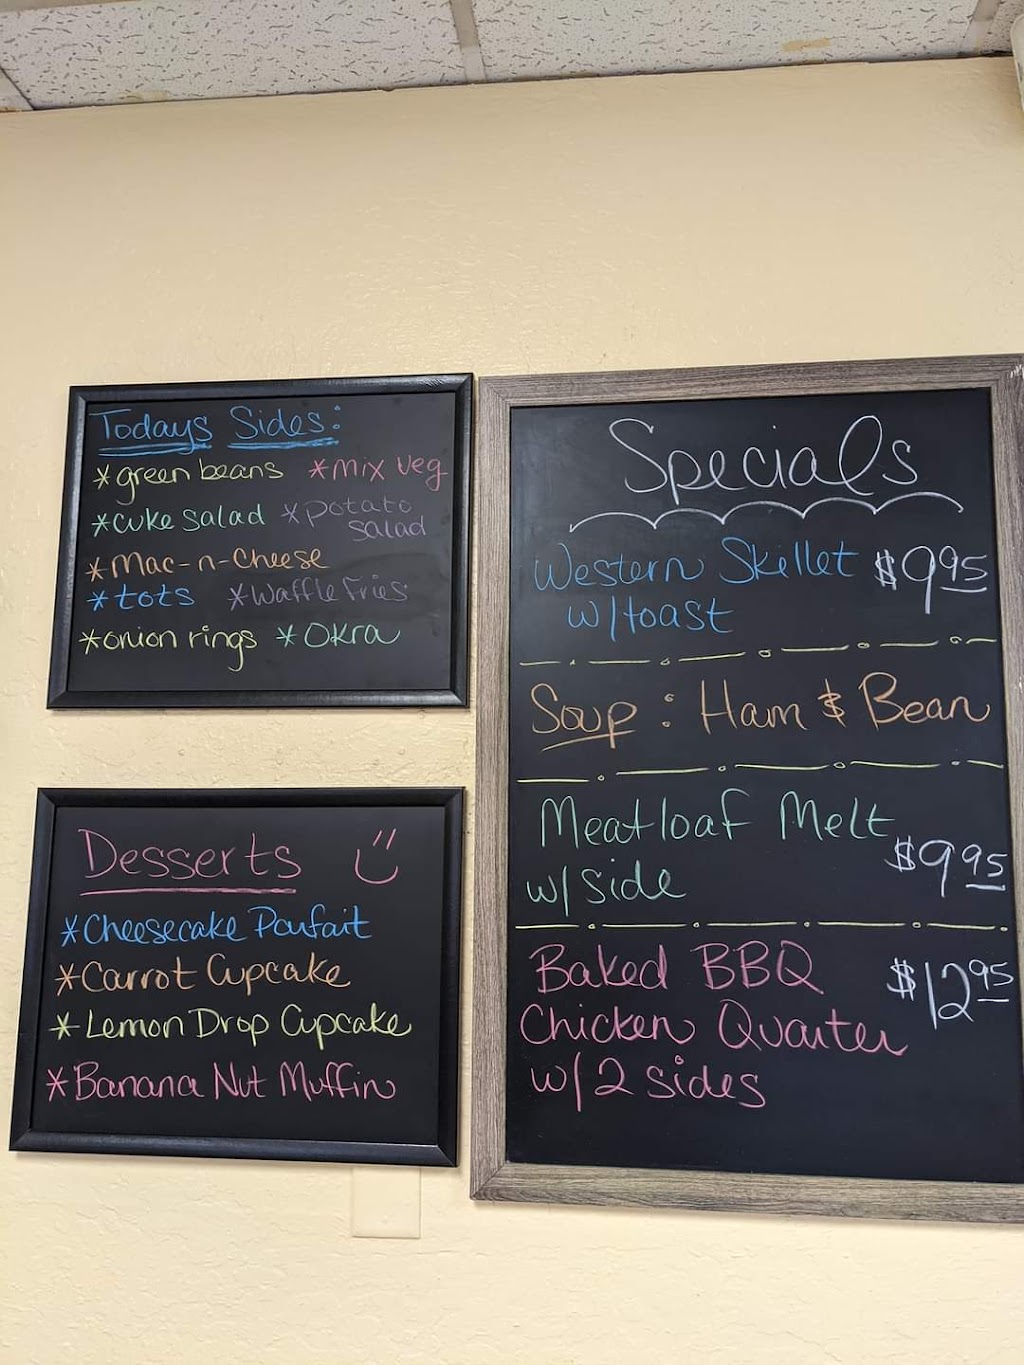 Todays Sides:
*green beans *mix veg
*cuke salad *potato salad
*Mac-n-Cheese
*tots *Waffle Fries
*onion rings *Okra
Desserts
*Cheesecake Parfait
*Carrot Cupcake
*Lemon Drop Cupcake
*Banana Nut Muffin
Specials
Western Skillet $9.95
w/toast
Soup: Ham & Bean
Meatloaf Melt
w/side $9.95
Baked BBQ $12.95
Chicken Quarter
w/2 sides